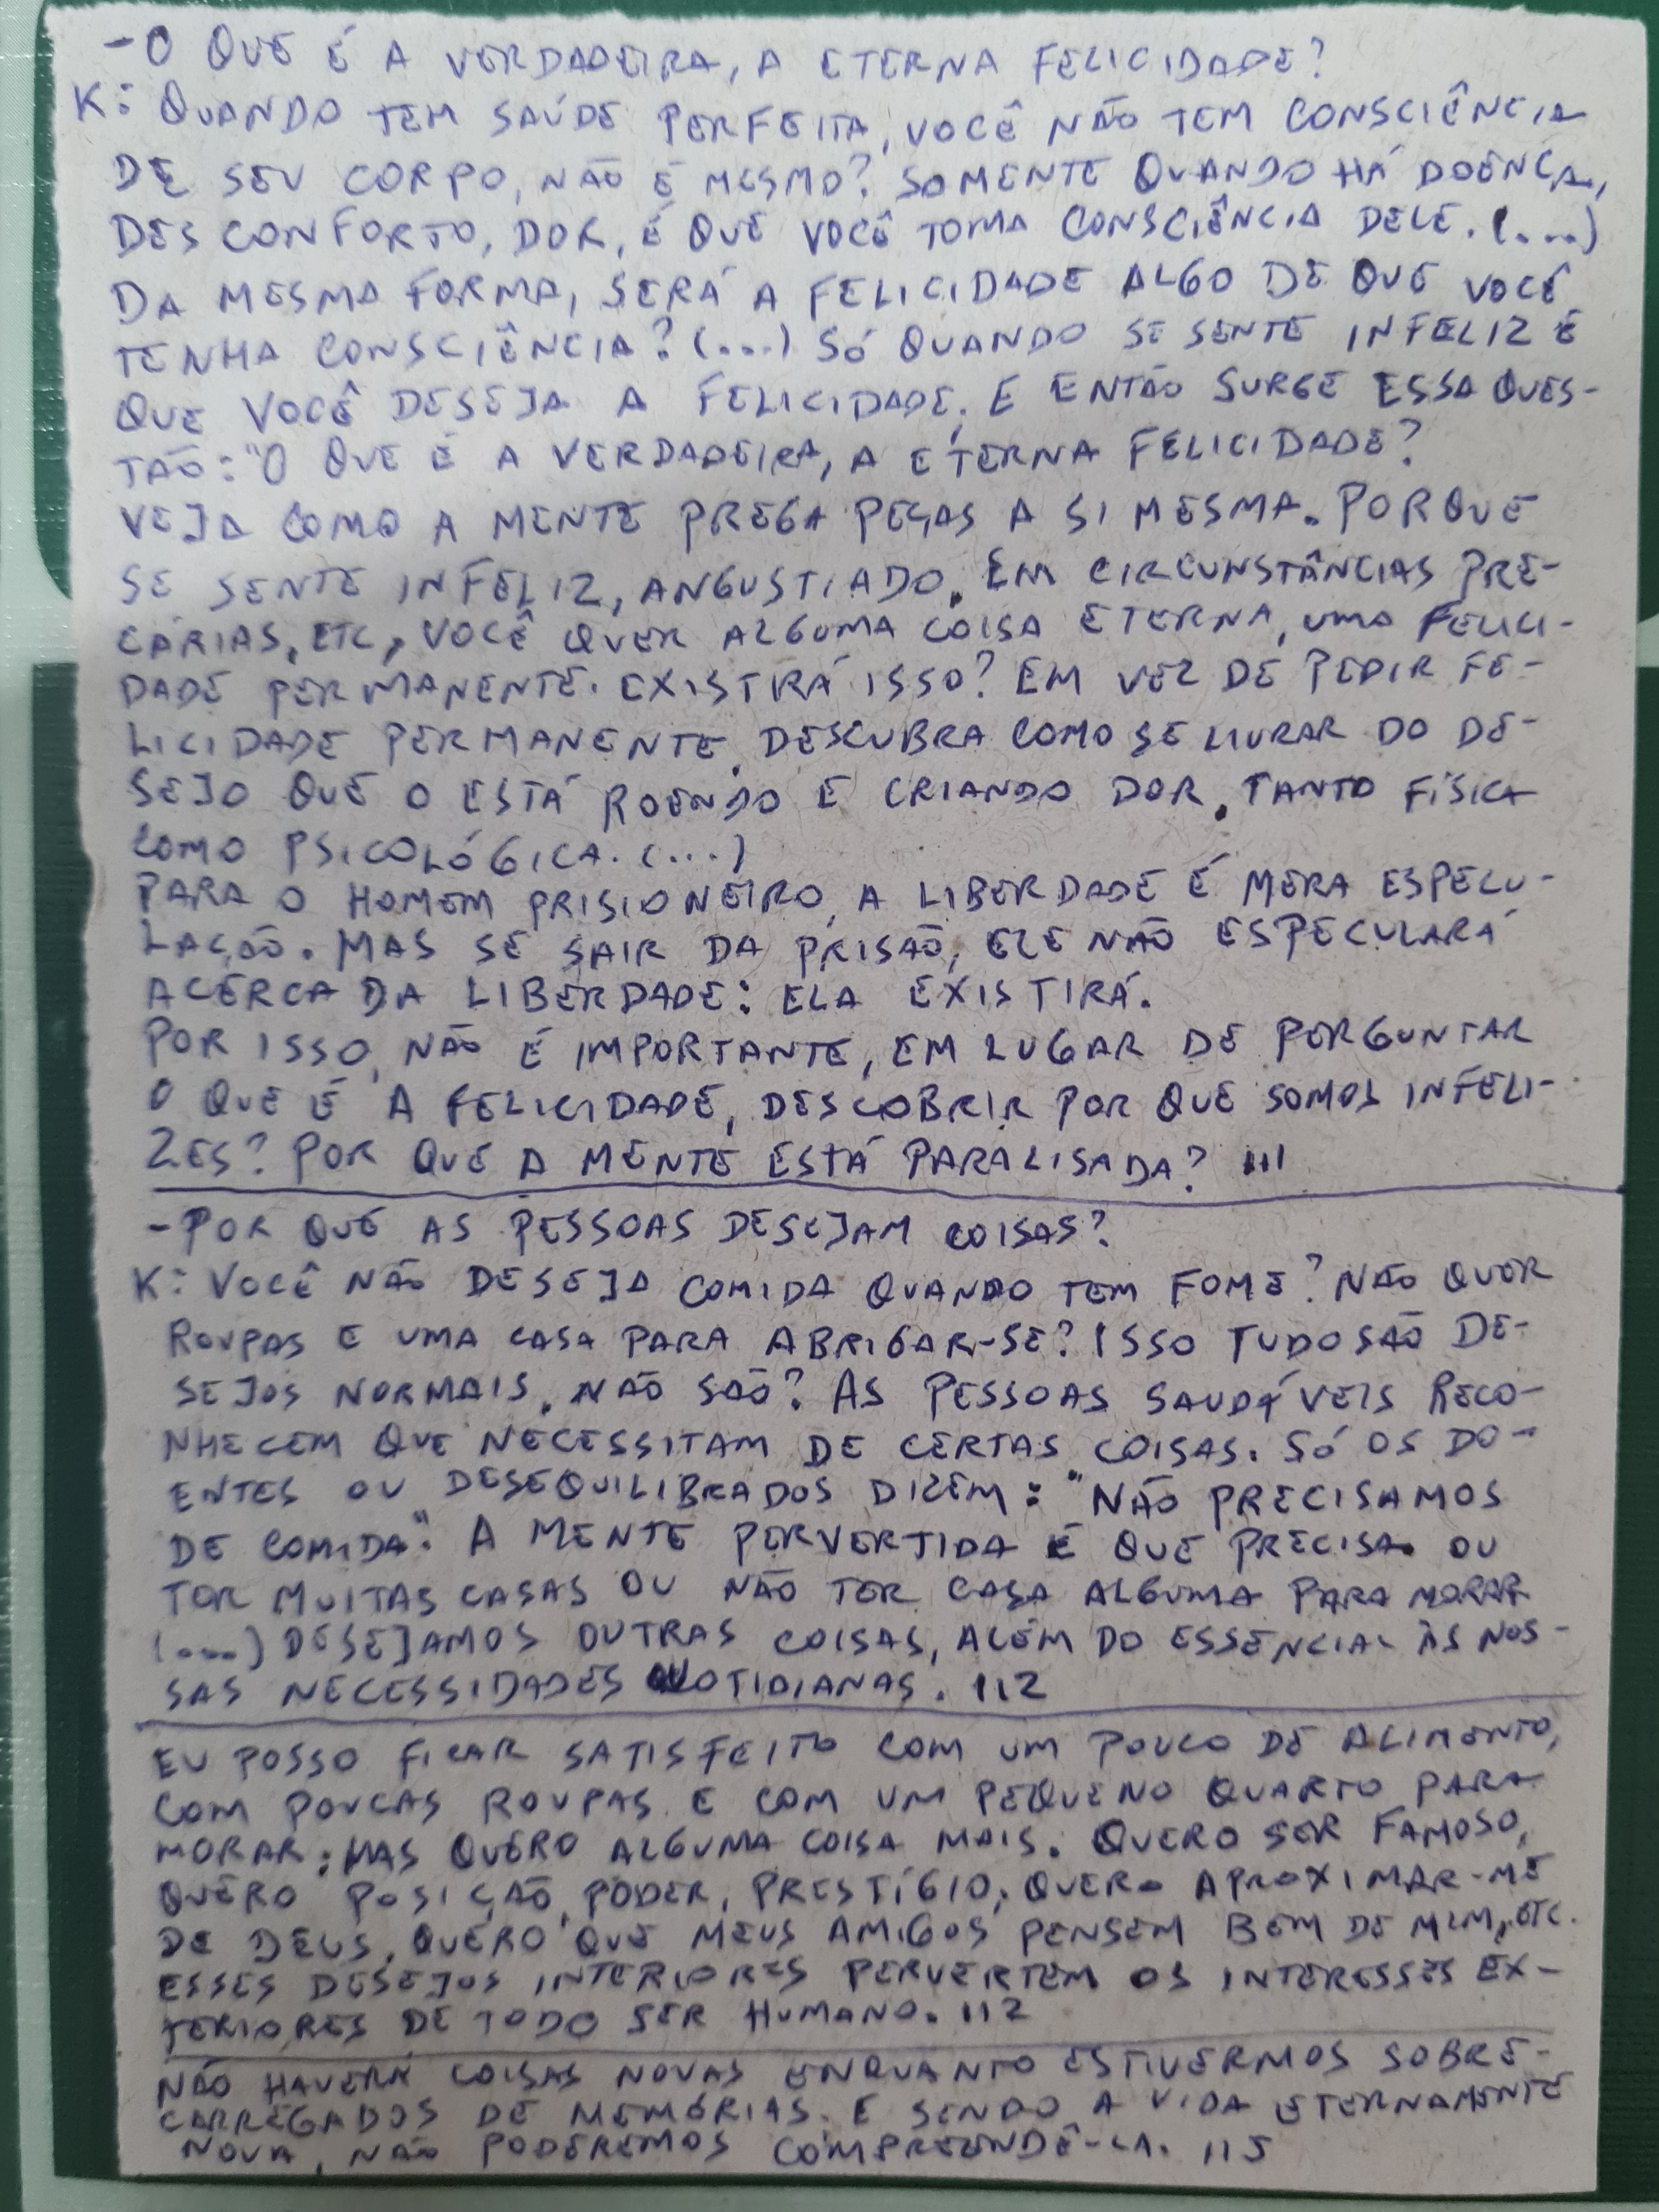 - O QUE É A VERDADEIRA, A ETERNA FELICIDADE?
K: QUANDO TEM SAÚDE PERFEITA, VOCÊ NÃO TEM CONSCIÊNCIA
DE SEU CORPO, NÃO É MESMO? SOMENTE QUANDO HÁ DOENÇA,
DESCONFORTO, DOR, É QUE VOCÊ TOMA CONSCIÊNCIA DELE. (...)
DA MESMA FORMA, SERÁ A FELICIDADE ALGO DE QUE VOCÊ
TENHA CONSCIÊNCIA? (...) SÓ QUANDO SE SENTE INFELIZ É
QUE VOCÊ DESEJA A FELICIDADE, E ENTÃO SURGE ESSA QUES-
TÃO: "O QUE É A VERDADEIRA, A ETERNA FELICIDADE?
VEJA COMO A MENTE PREGA PEÇAS A SI MESMA. PORQUE
SE SENTE INFELIZ, ANGUSTIADO, EM CIRCUNSTÂNCIAS PRE-
CÁRIAS, ETC, VOCÊ QUER ALGUMA COISA ETERNA, UMA FELICI-
DADE PERMANENTE. EXISTIRÁ ISSO? EM VEZ DE PEDIR FE-
LICIDADE PERMANENTE, DESCUBRA COMO SE LIVRAR DO DE-
SEJO QUE O ESTÁ ROENDO E CRIANDO DOR, TANTO FÍSICA
COMO PSICOLÓGICA. (...)
PARA O HOMEM PRISIONEIRO, A LIBERDADE É MERA ESPECU-
LAÇÃO. MAS SE SAIR DA PRISÃO, ELE NÃO ESPECULARÁ
ACERCA DA LIBERDADE: ELA EXISTIRÁ.
POR ISSO, NÃO É IMPORTANTE, EM LUGAR DE PERGUNTAR
O QUE É A FELICIDADE, DESCOBRIR POR QUE SOMOS INFELI-
ZES? POR QUE A MENTE ESTÁ PARALISADA? 111
- POR QUE AS PESSOAS DESEJAM COISAS?
K: VOCÊ NÃO DESEJA COMIDA QUANDO TEM FOME? NÃO QUER
ROUPAS E UMA CASA PARA ABRIGAR-SE? ISSO TUDO SÃO DE-
SEJOS NORMAIS, NÃO SÃO? AS PESSOAS SAUDÁVEIS RECO-
NHECEM QUE NECESSITAM DE CERTAS COISAS. SÓ OS DO-
ENTES OU DESEQUILIBRADOS DIZEM: "NÃO PRECISAMOS
DE COMIDA". A MENTE PERVERTIDA É QUE PRECISA OU
TER MUITAS CASAS OU NÃO TER CASA ALGUMA PARA MORAR
(...) DESEJAMOS OUTRAS COISAS, ALÉM DO ESSENCIAL ÀS NOS-
SAS NECESSIDADES QUOTIDIANAS. 112
EU POSSO FICAR SATISFEITO COM UM POUCO DE ALIMENTO,
COM POUCAS ROUPAS E COM UM PEQUENO QUARTO PARA
MORAR; MAS QUERO ALGUMA COISA MAIS. QUERO SER FAMOSO,
QUERO POSIÇÃO, PODER, PRESTÍGIO, QUERO APROXIMAR-ME
DE DEUS, QUERO QUE MEUS AMIGOS PENSEM BEM DE MIM, ETC.
ESSES DESEJOS INTERIORES PERVERTEM OS INTERESSES EX-
TERIORES DE TODO SER HUMANO. 112
NÃO HAVERÁ COISAS NOVAS ENQUANTO ESTIVERMOS SOBRE-
CARREGADOS DE MEMÓRIAS. E SENDO A VIDA ETERNAMENTE
NOVA, NÃO PODEREMOS COMPREENDÊ-LA. 115